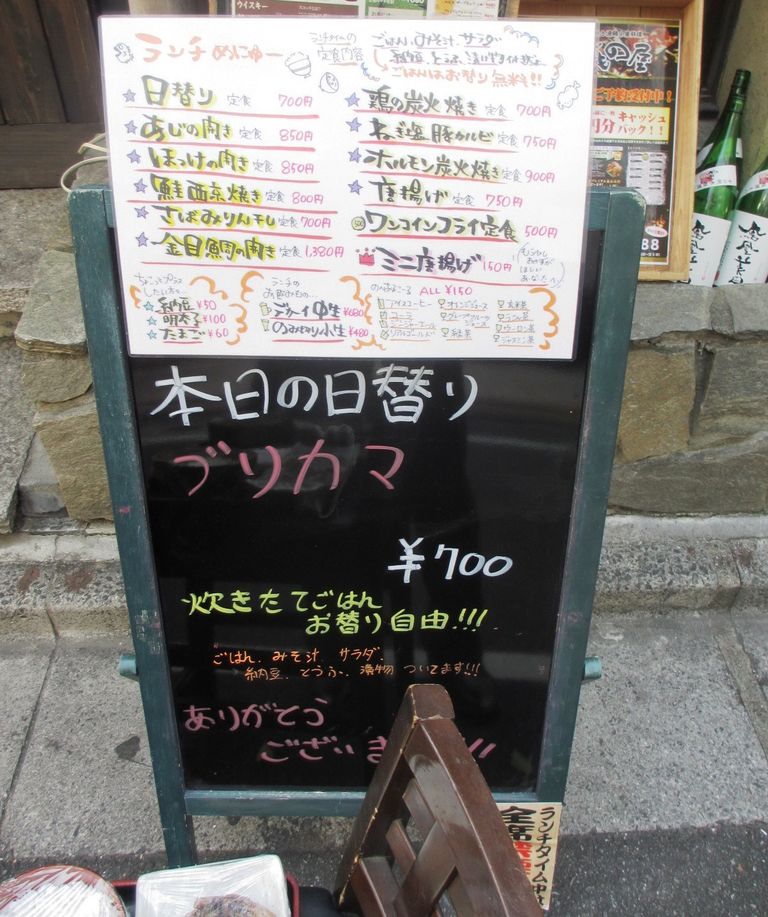 ウイスキー
ランチめにゅー
ランチタイムの
定食内容
ごはん、みそ汁、サラダ
ごはんはお替り無料!!
日替り 定食 700円
あじの開き 定食 850円
ほっけの開き 定食 850円
鮭西京焼き 定食 800円
さばみりん干し 定食 700円
金目鯛の開き 定食 1,380円
鶏の炭火焼き 定食 700円
ねぎ塩豚カルビ 定食 750円
ホルモン炭火焼き 定食 900円
唐揚げ 定食 750円
500 ワンコインフライ定食 500円
ミニ唐揚げ 150円
ちょこっとプラス
したい方へ
納豆 ¥50
明太子 ¥100
たまご ¥60
ランチの
お飲みもの…
デカーイ中生 ¥680
のみきり小生 ¥480
ALL ¥150
アイスコーヒー
コーラ
ジンジャーエール
リアルゴールド
オレンジジュース
グレープフルーツ
ジュース
緑茶
玄米茶
ウーロン茶
ジャスミン茶
ご予約受付中!
キャッシュ
バック!!
本日の日替り
ブリカマ
¥700
炊きたてごはん
お替り自由!!!
ごはん、みそ汁、サラダ、
納豆、とうふ、漬物 ついてます!!!
ありがとう
ござい
ランチタイム中は
全席